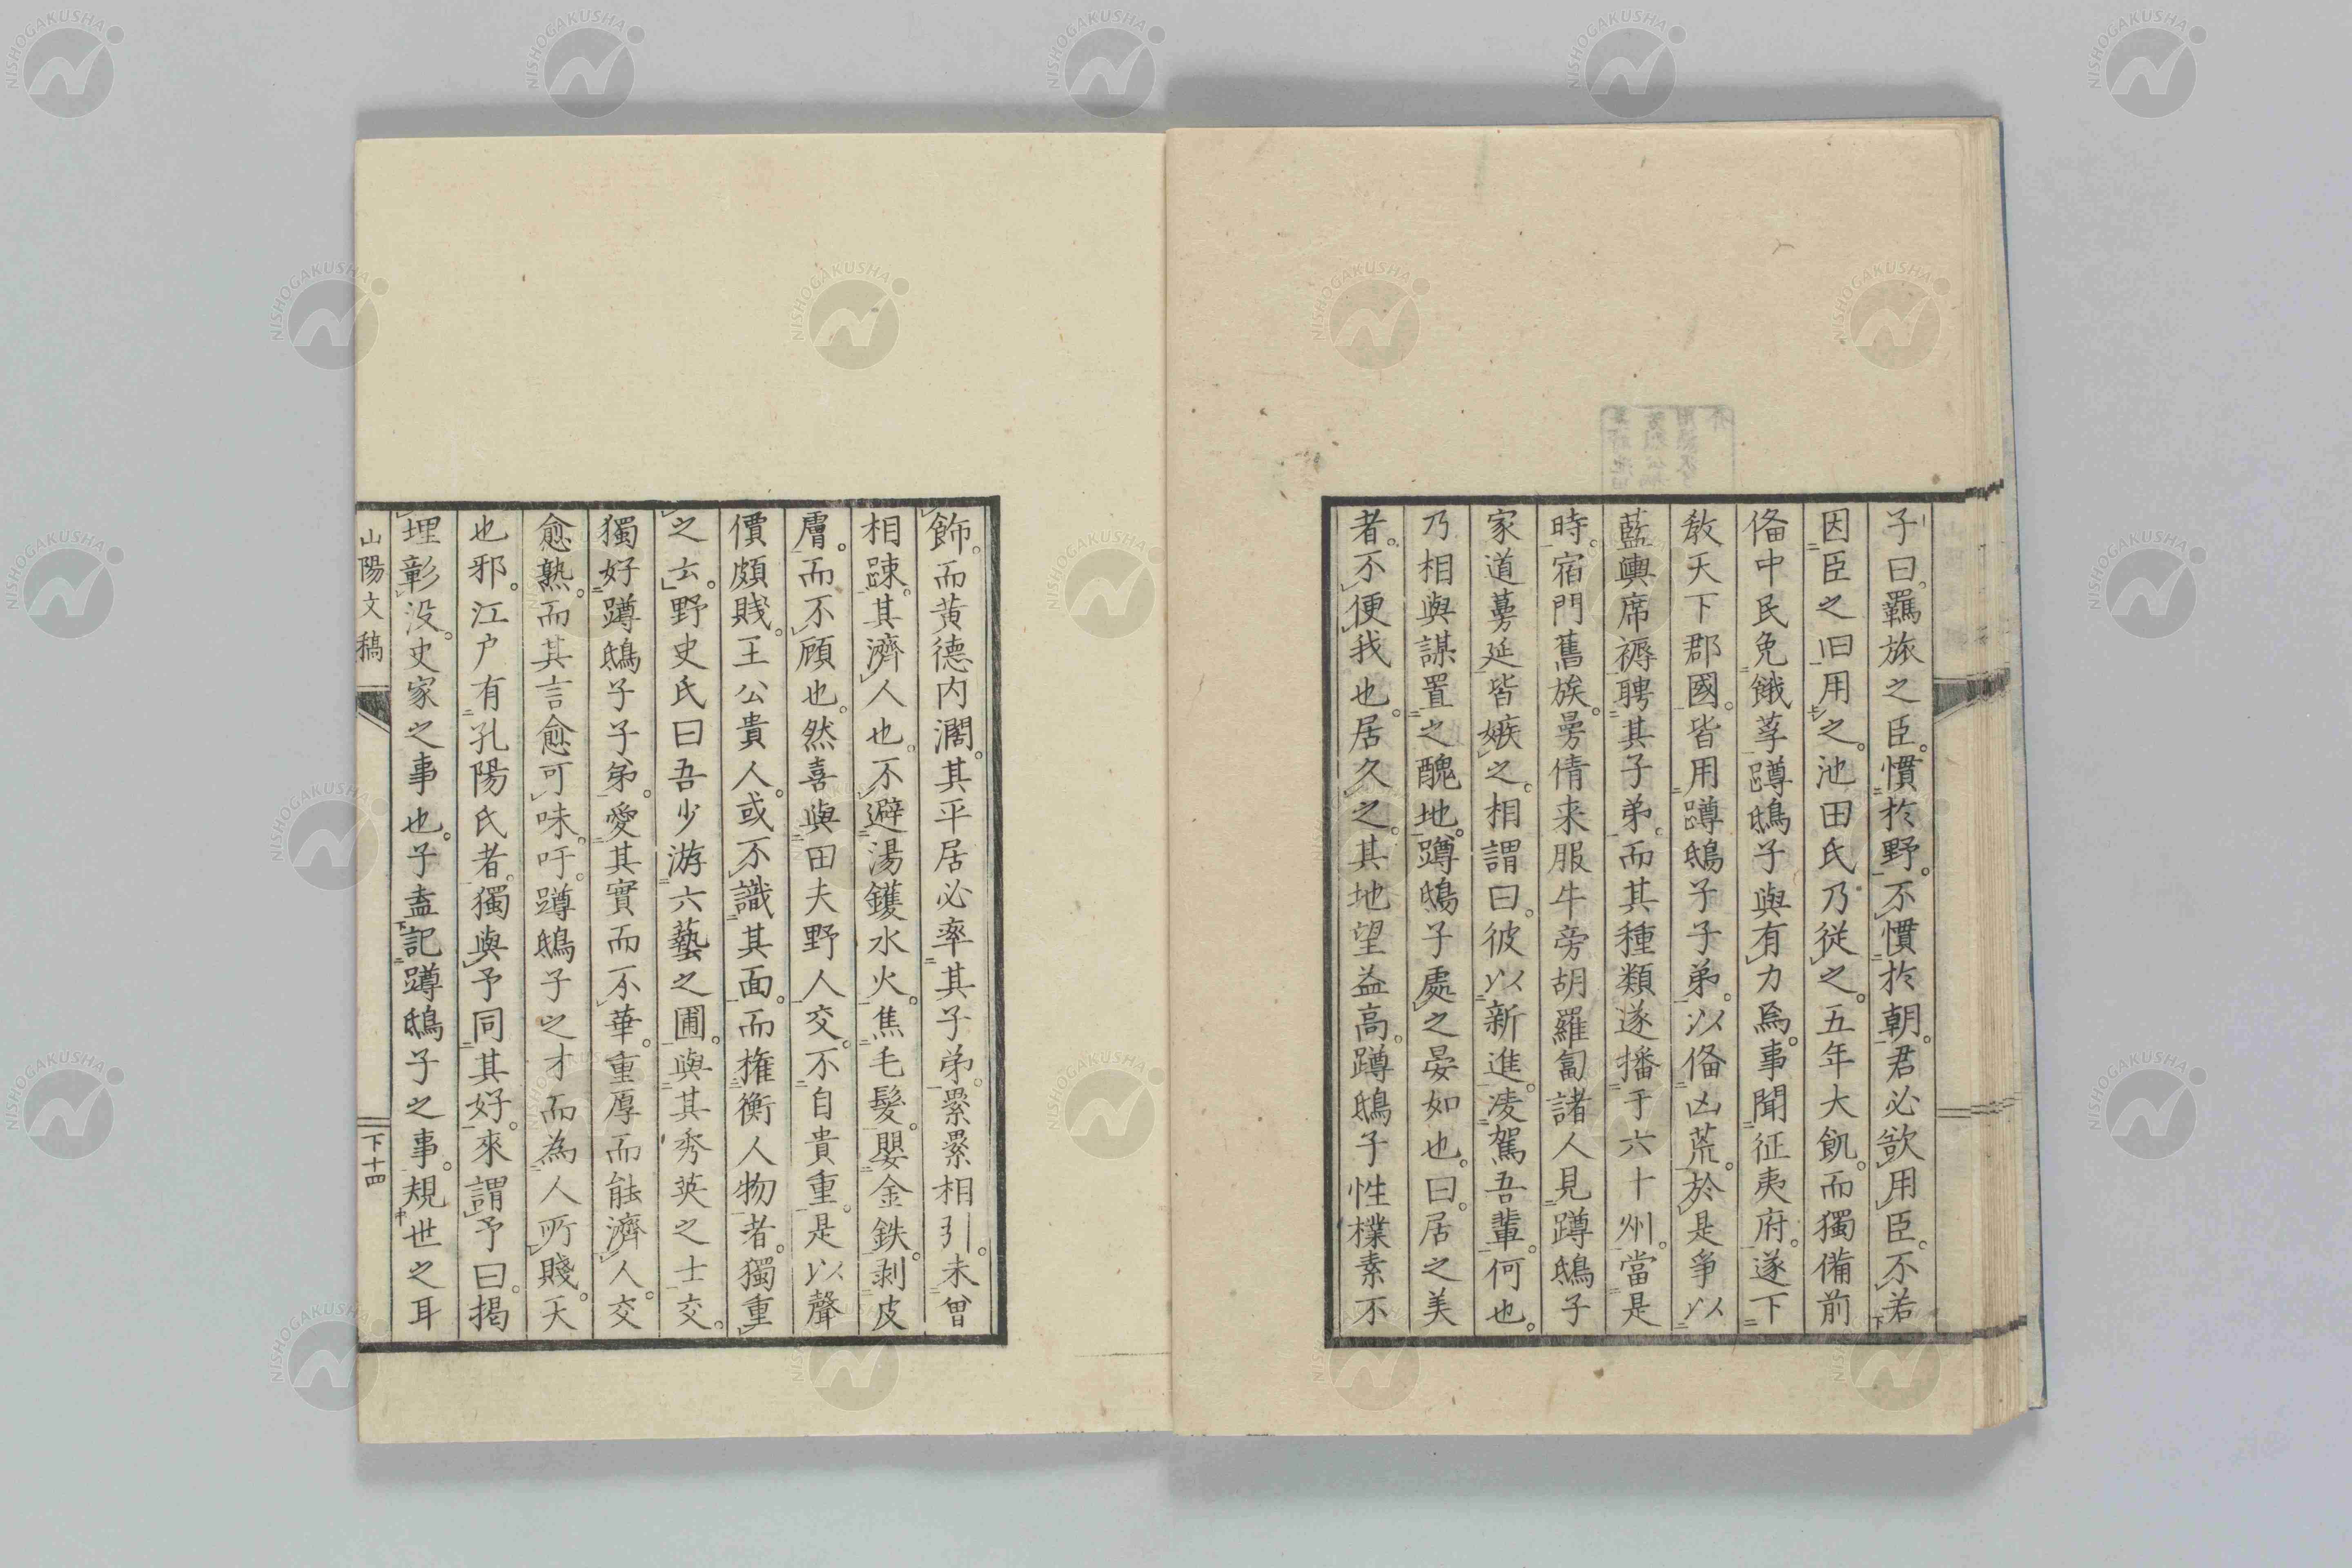 子曰。羈旅之臣。慣於野。不慣於朝。君必欲用臣。不若
因臣之旧用之。池田氏乃從之。五年大飢。而獨備前
俻中民免餓莩。蹲鴟子與有力焉。事聞征夷府。遂下
敎天下郡國。皆用蹲鴟子子弟。以俻凶荒。於是爭以
藍輿席褥聘其子弟。而其種類遂播于六十州。當是
時。宿門舊族。曼倩来服牛旁胡羅匐諸人見蹲鴟子
家道蔓延。皆嫉之。相謂曰。彼以新進。凌駕吾輩。何也。
乃相與謀置之醜地。蹲鴟子處之晏如也。曰。居之美
者。不便我也。居久之。其地望益高。蹲鴟子性樸素不
飾。而黄德内濶。其平居必率其子弟。累累相引。未曾
相踈。其濟人也。不避湯鑊水火。焦毛髮。嬰金鉄。剥皮
膚。而不顧也。然喜與田夫野人交。不自貴重。是以聲
價頗賎。王公貴人。或不識其面。而搉衡人物者。獨重
之云。野史氏曰吾少游六藝之圃。與其秀英之士交。
獨好蹲鴟子子弟。愛其實而不華。重厚而能濟人。交
愈熟。而其言愈可味。吁。蹲鴟子之才而為人所賤。天
也邪。江户有孔陽氏者。獨與予同其好。來謂予曰。掲
埋彰没。史家之事也。子盍記蹲鴟子之事。規世之耳
山陽文稿
下十四
NISHOGAKUSHA